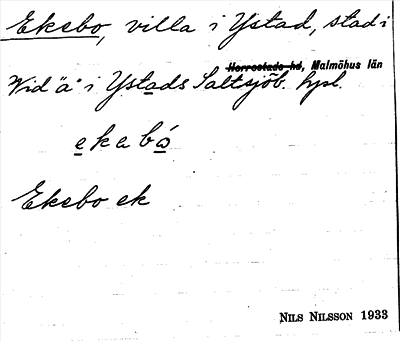 Ekebo, villa i Ystad, stad i
Herrestads hd, Malmöhus län
Vid "ä" i Ystads Saltsjöb. hpl.
ekabó
Ekebo ek
NILS NILSSON 1933